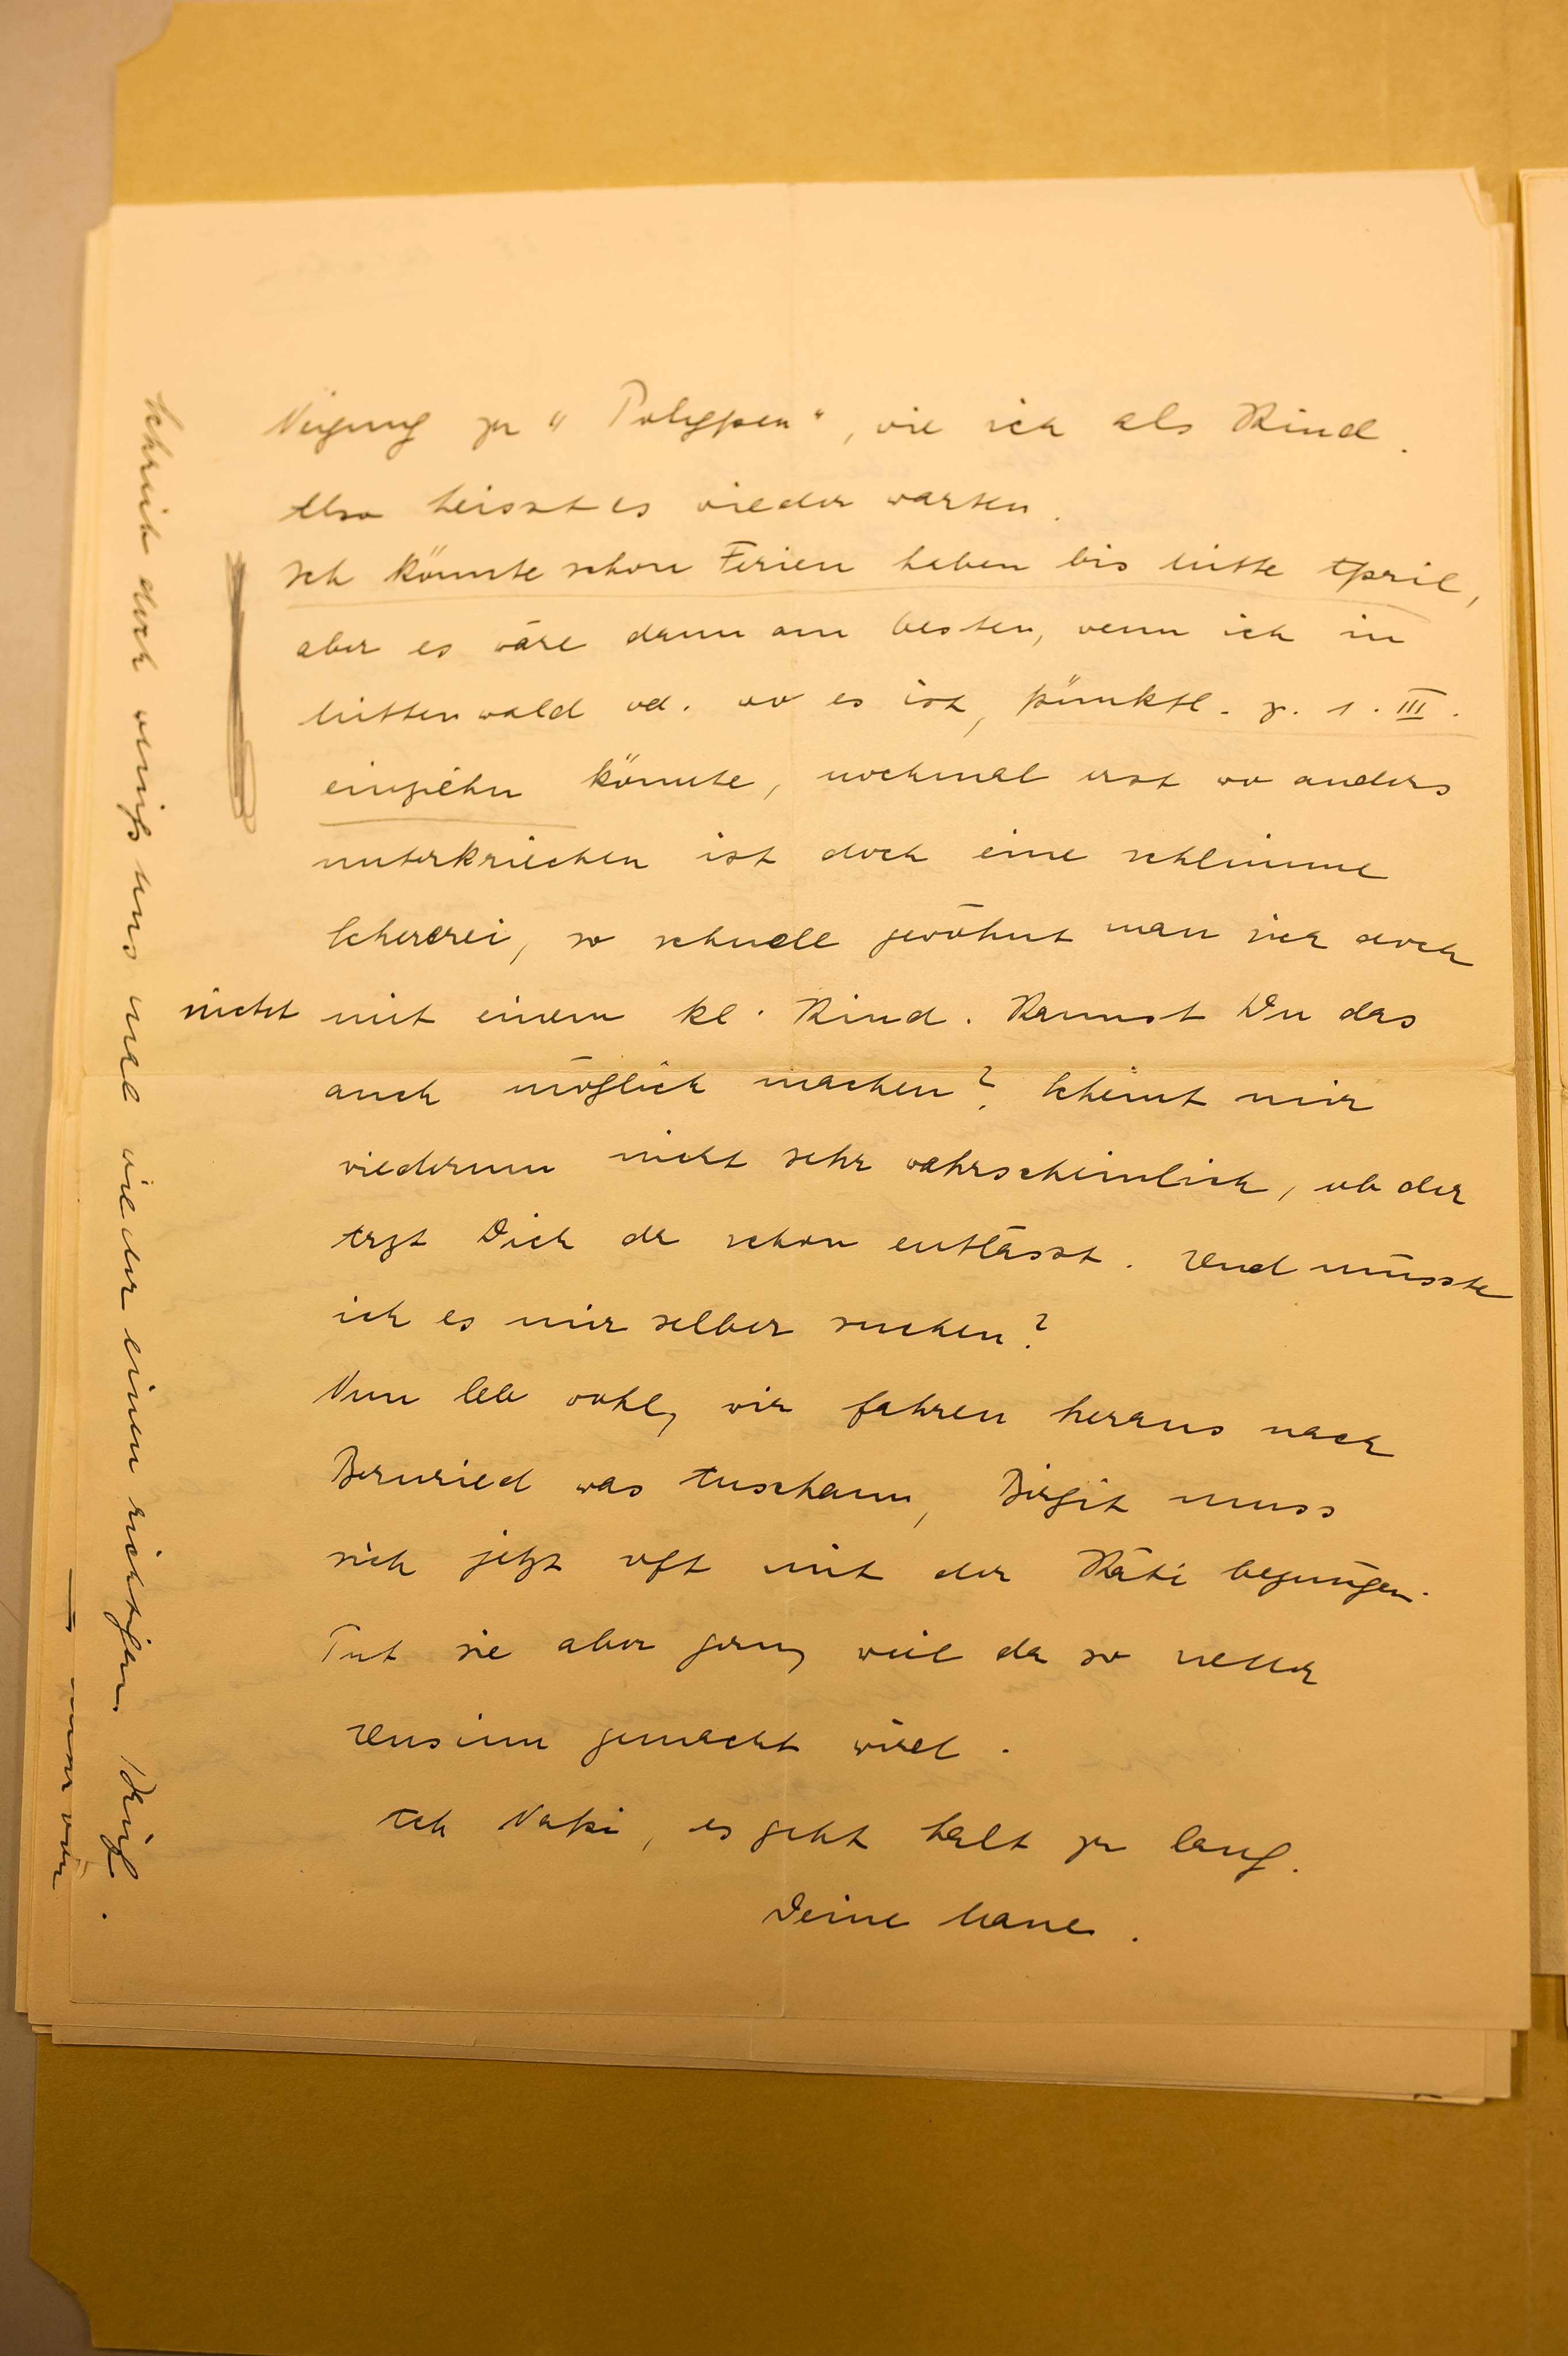 Neigung zu "Polyppen", wie ich als Kind.
Also heisst es wieder warten.
Ich könnte schon Ferien haben bis Mitte April,
aber es wäre dann am besten, wenn ich in
Mittenwald od. wo es ist, pünktl. z. 1. III.
einziehn könnte, nochmal erst wo anders
unterkriechen ist doch eine schlimme
Schererei, so schnell gewöhnt man sich doch
nicht mit einem kl. Kind. Kannst Du das
auch möglich machen? Scheint mir
wiederum nicht sehr wahrscheinlich, ob der
Arzt Dich da schon entlässt. Und müsste
ich es mir selber suchen?
Nun leb wohl, wir fahren heraus nach
Bernried was Anschaun, Birgit muss
sich jetzt oft mit der Käti begnügen.
Tut sie aber gern, weil da so netter
Unsinn gemacht wird.
Ach Vapi, es geht halt zu lang.
Deine Mane.
Schreib doch wenigs uns mal wieder einen richtigen